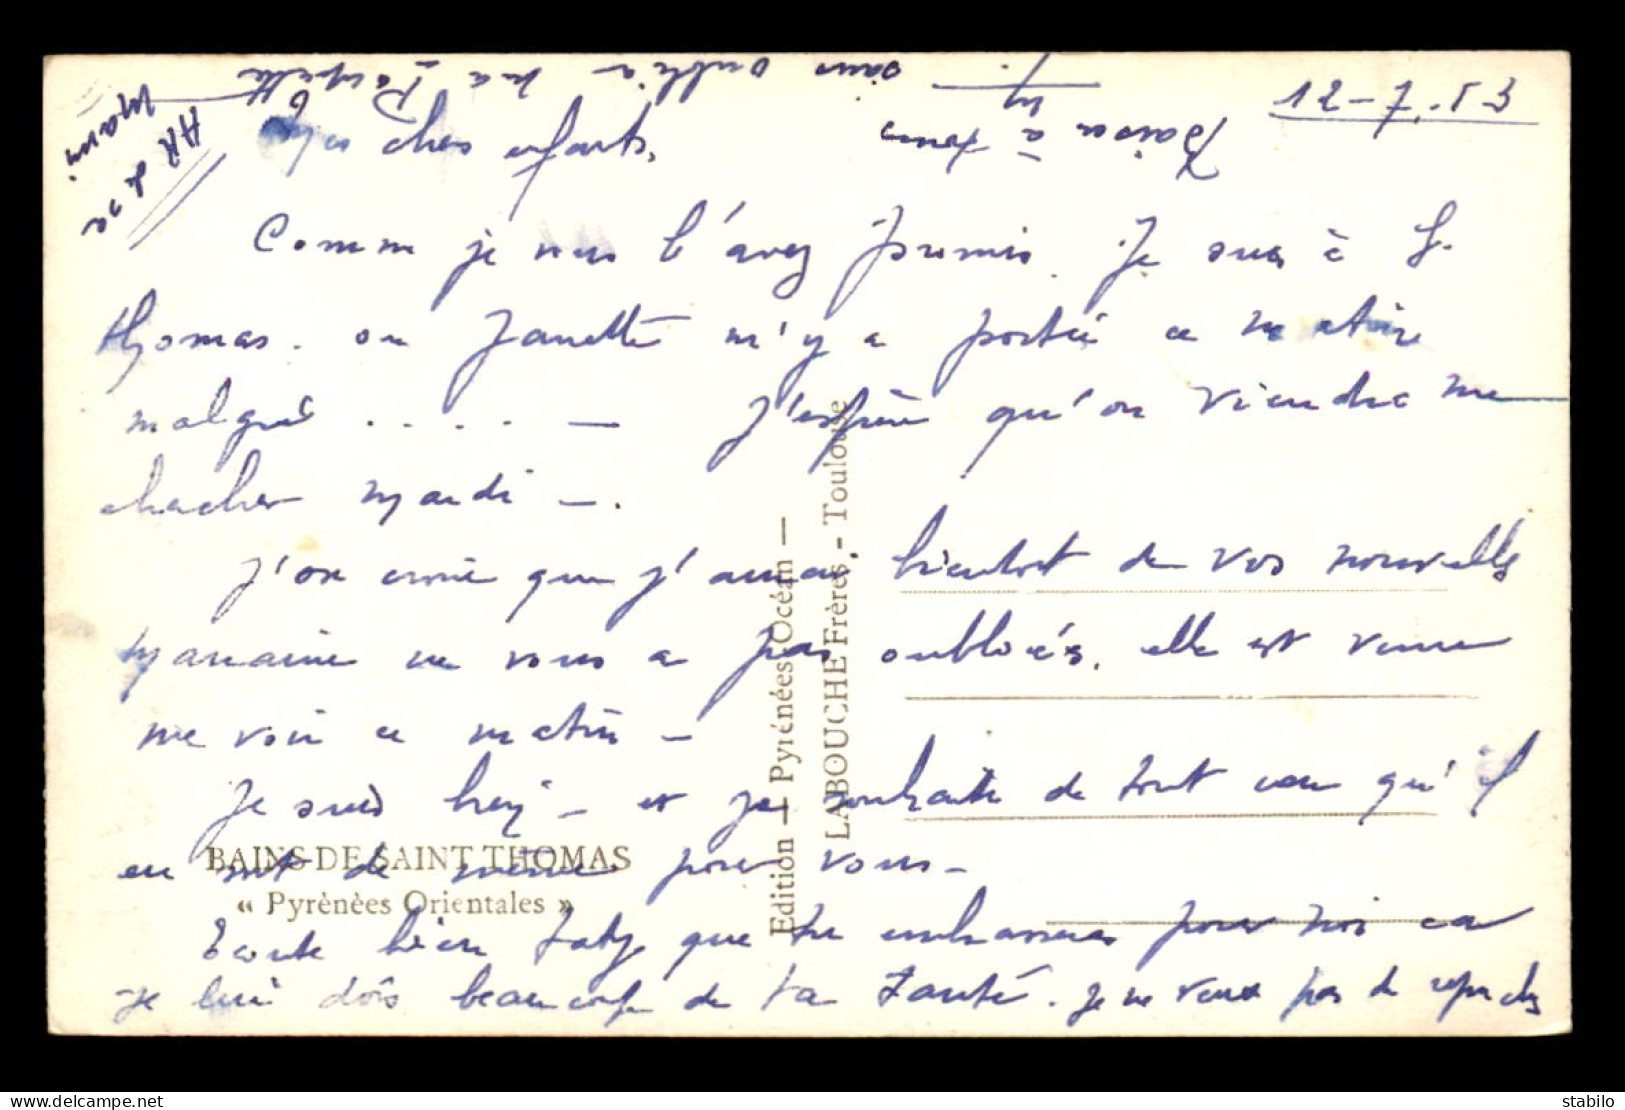 12-7-53
Mes chers enfants,
Comme je vous l'avez promis. Je suis à St
Thomas. ou Janette m'y a portée ce matin
malgré . . . . — J'espère qu'on viendra me
chercher mardi —.
J'ose croire que j'aurai bientôt de vos nouvelles
ne vous a pas oubliés. elle est venue
me voir ce matin —
Je suis bien — et je souhaite de tout cœur qu'il
en soit de même pour vous —
Ecoute bien Taty que tu embrasseras pour moi car
je lui dois beaucoup de ta santé. je ne veux pas de reproches
Baisers à tous
sans oublier ma
BAINS-DE-SAINT THOMAS
« Pyrènèes Orientales »
Edition — Pyrénées-Océan —
LABOUCHE Frères - Toulouse
www.delcampe.net
stabilo